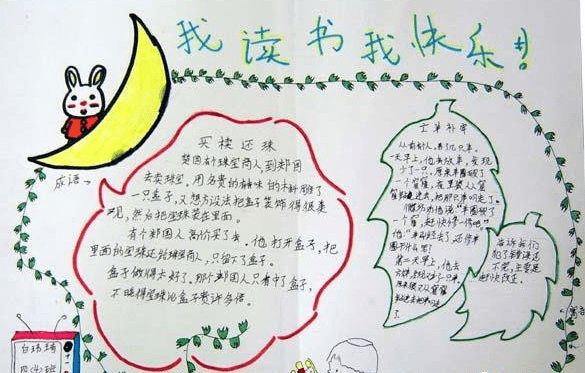 我读书我快乐!
成语→
买椟还珠
楚国有个珠宝商人,到郑国
去卖珠宝。用名贵的
一只盒子,又想方设法把盒子装饰得很美
观,然后把宝珠装在里面。
有个郑国人高价买了去。他打开盒子,把
里面的宝珠还给珠宝商人,只留下了盒子。
盒子做得太好了。那个郑国人只看中了盒子,
不晓得宝珠比盒子贵许多倍。
亡羊补牢
从前有人,养几只羊。
一天早上,他去放羊,发现
少了一只。原来羊圈破了
一个窟窿,夜里狼从窟
窿钻进去,把那只羊叼走了。
街坊劝他说:“羊圈破了
一个窟,赶快修一修吧。”
他
羊圈干什么呢?
第二天早上,他去
告诉我们
犯了错误还
不要紧
赶快改正。